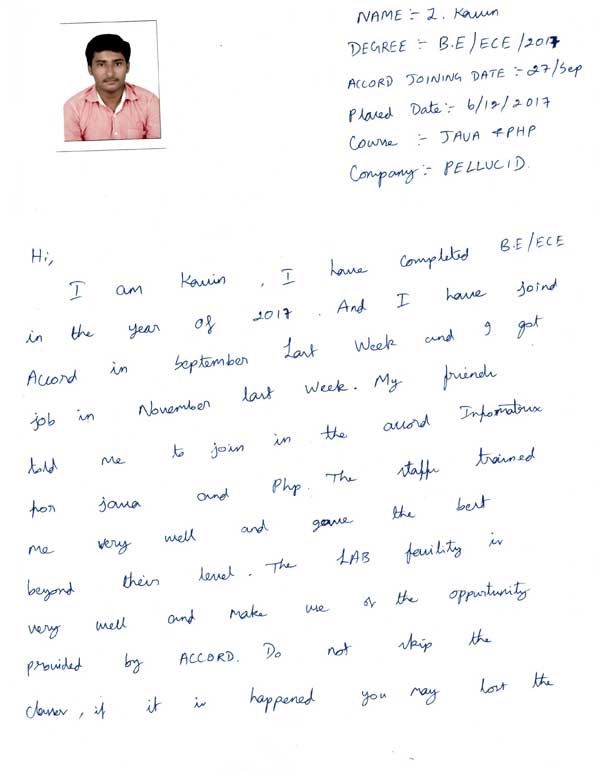 NAME :- I. Kavin
DEGREE :- B.E/ECE/2017
ACCORD JOINING DATE :- 27/Sep
Placed Date :- 6/12/2017
Course :- JAVA & PHP
Company :- PELLUCID.
Hi,
I am Kavin, I have completed B.E/ECE
in the year of 2017. And I have joind
Accord in September Last Week and I got
job in November last Week. My friends
told me to join in the accord Infomatrix
for java and Php. The staffs trained
me very well and gave the best
beyond their level. The LAB facility is
very well and make use of the oppurtunity
provided by ACCORD. Do not skip the
classes, if it is happened you may lost the